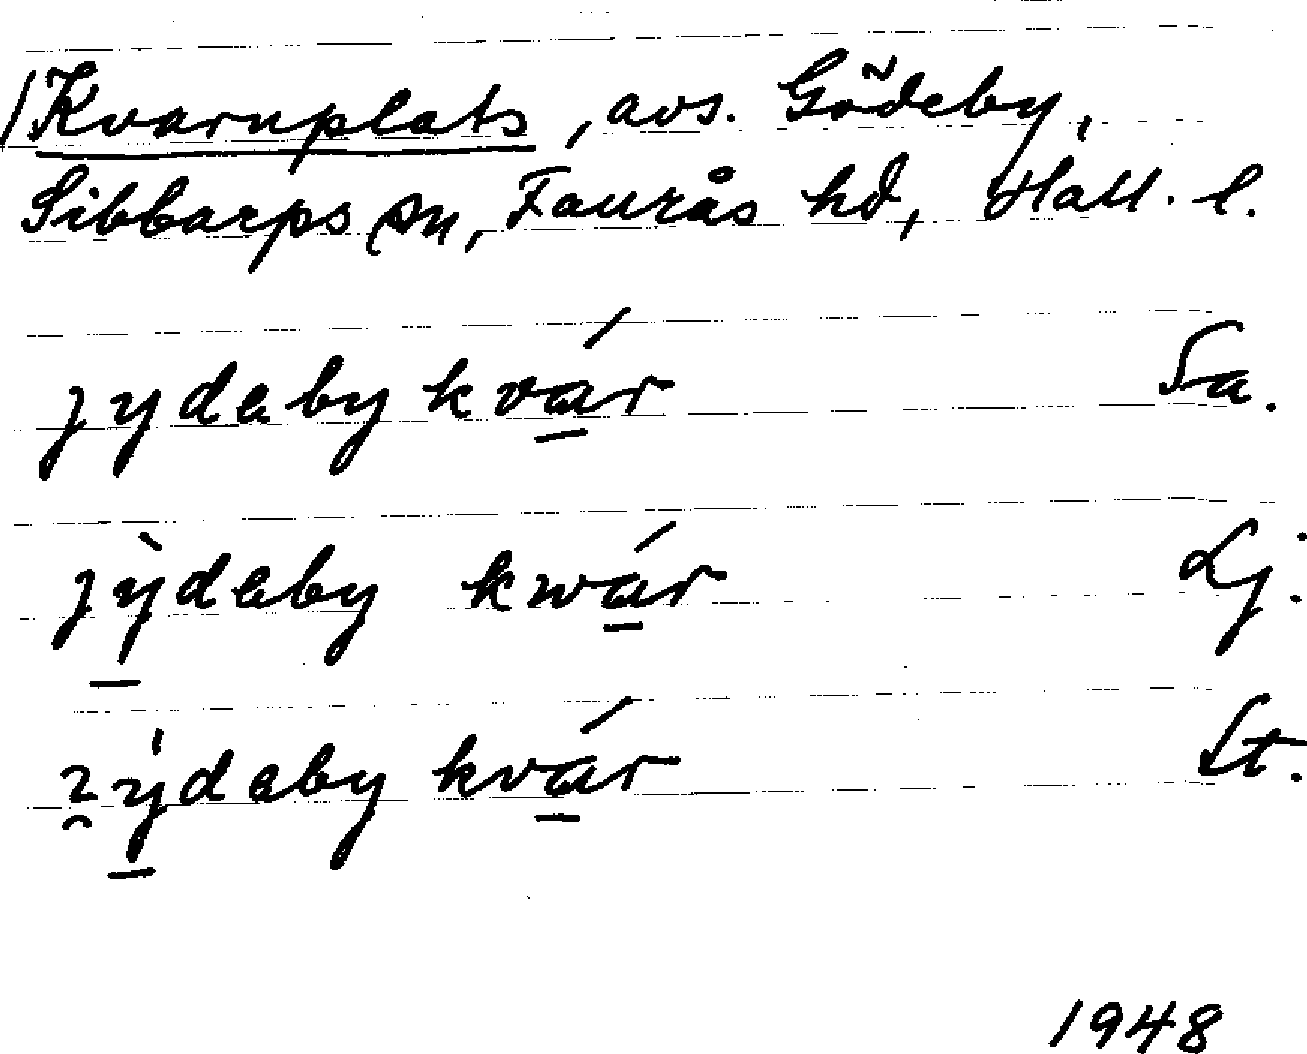 /Kvarnplats, avs. Gödeby,
Sibbarps sn, Faurås hd, Hall. l.
jydaby kvár Sa.
jỳdaby kwár Lj.
ʒ̑ỳdaby kvár St.
1948